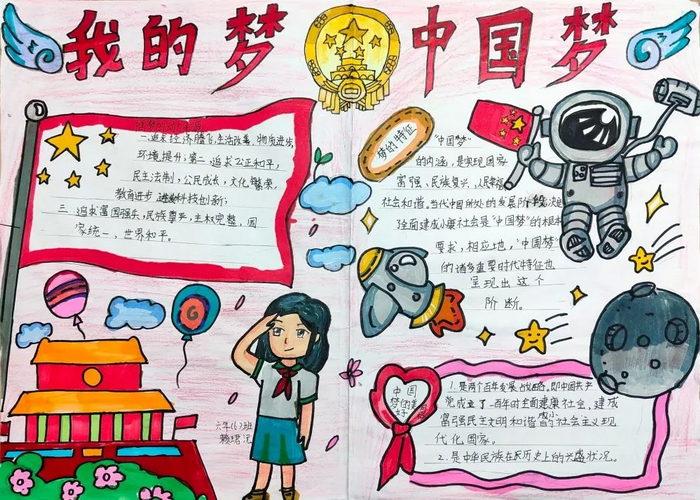 我的梦 中国梦
一、追求经济腾飞,生活改善,物质进步,
环境提升;第二、追求公正和平,
民主法制,公民成长,文化繁荣,
教育进步 科技创新;
三、追求富国强兵,民族尊严,主权完整,国
家统一、世界和平。
梦的特征
"中国梦"
的内涵,是实现国家
富强、民族复兴、人民幸福
社会和谐,当代中国所处的发展阶段决定
了全面建成小康社会是"中国梦"的根本
要求,相应地,"中国梦"
的诸多重要时代特征也
呈现出这个
阶断。
中国
1.是两个百年发展战略,即中国共产
党成立了一百年时全面建康社会,建成
富强民主文明和谐的社会主义现
代化国家。
2.是中华民族在历史上的兴盛状况。
六年(6)班